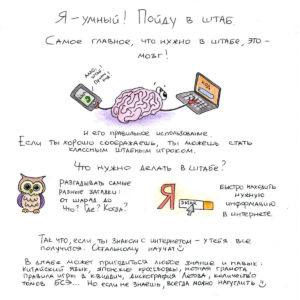 Я-умный! Пойду в штаб.
Самое главное, что нужно в штабе, это -
мозг!
и его правильное использование.
Если ты хорошо соображаешь, ты можешь стать
классным штабным игроком.
Что нужно делать в штабе?
Разгадывать самые
разные загадки:
от шарад до
Что? Где? Когда?
Я
знак
быстро находить
нужную
информацию
в интернете.
Так что, если ты знаком с интернетом - у тебя все
получится. Остальному научат
В штабе может пригодиться любое знание и навык:
китайский язык, японские кроссворды, нотная грамота,
правила игры в квиддич, дискография Летова, количество
томов БСЭ... Но если не знаешь, всегда можно нагуглить